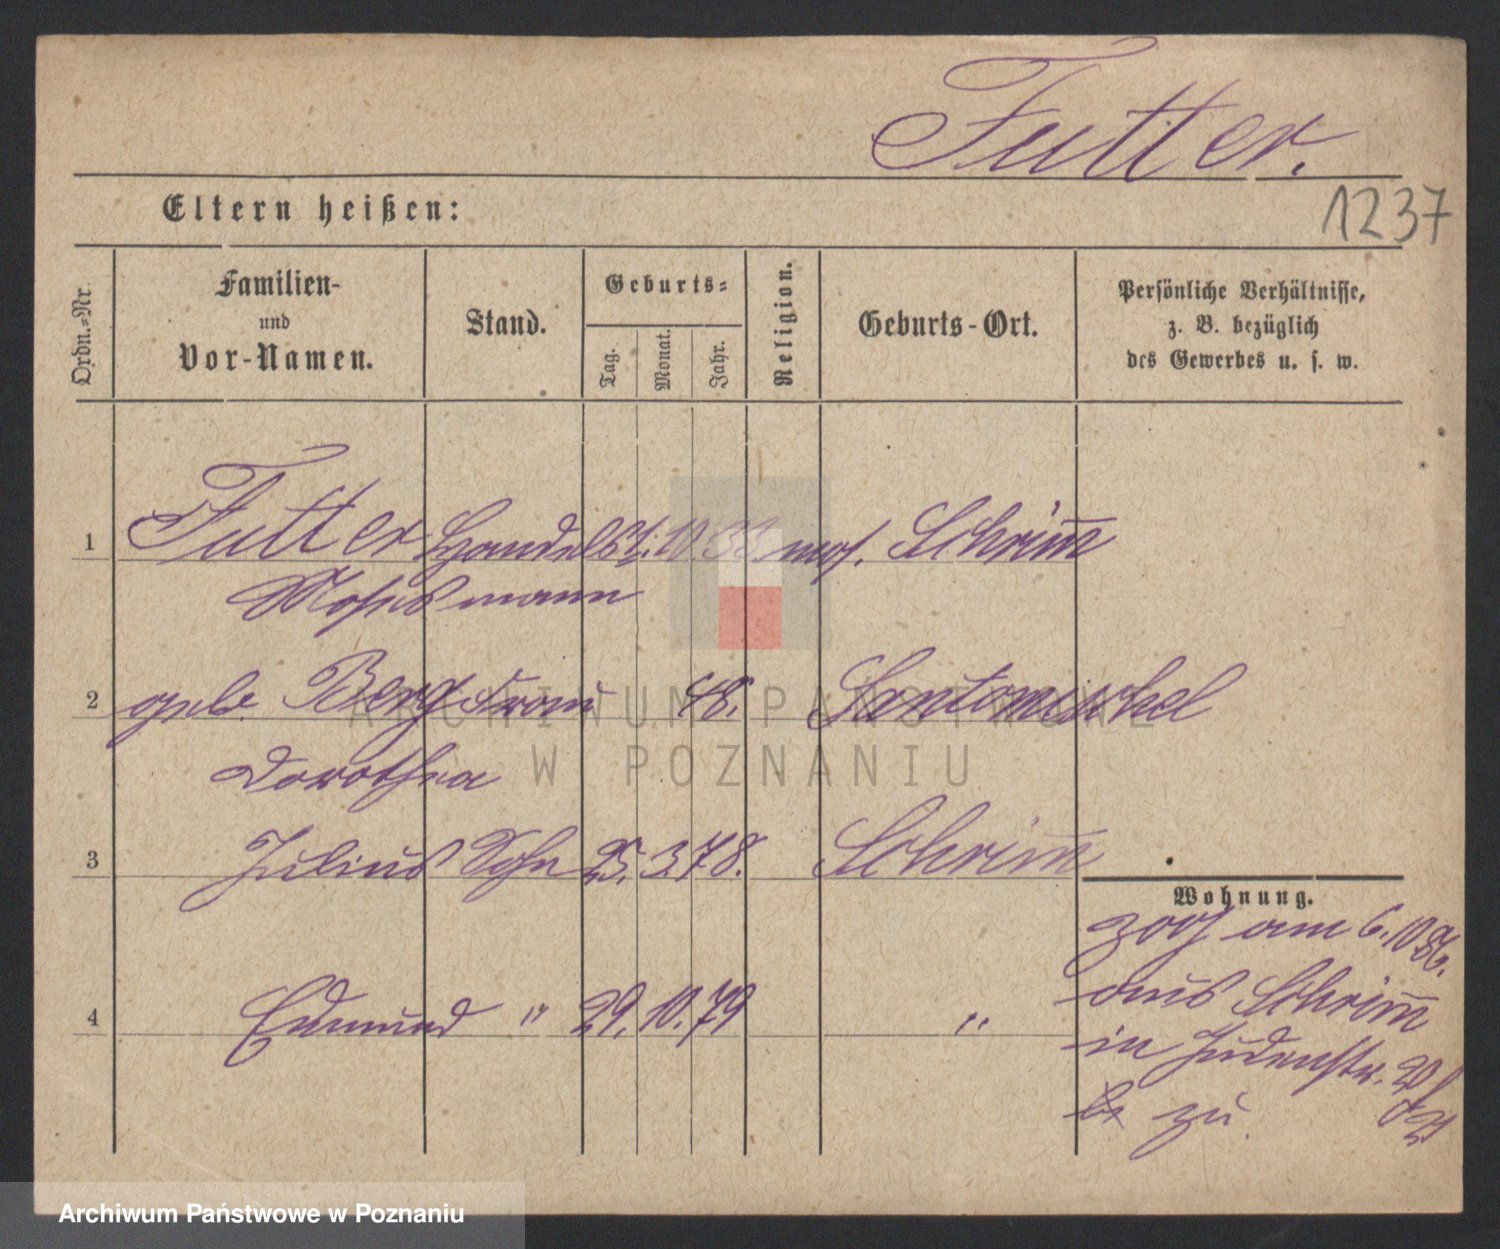 Futter.
1237
Eltern heißen:
Ordn.-Nr.
Familien-
und
Vor-Namen.
Stand.
Geburts-
Tag.
Monat.
Jahr.
Religion.
Geburts-Ort.
Persönliche Verhältnisse,
z. B. bezüglich
des Gewerbes u. s. w.
1 Futter Handels 1. 10 33. mos. Schrim̅
Moses mann
2 geb. Berg Frau 48. Santomischel
Dorothea
3 Julius Sohn 25. 3. 78. Schrim̅
Wohnung.
zog am 6. 10 86.
4 Edmund " 29. 10. 79 "
aus Schrim̅
in Judenstr. 20
zu.
ARCHIWUM PAŃSTWOWE
W POZNANIU
Archiwum Państwowe w Poznaniu